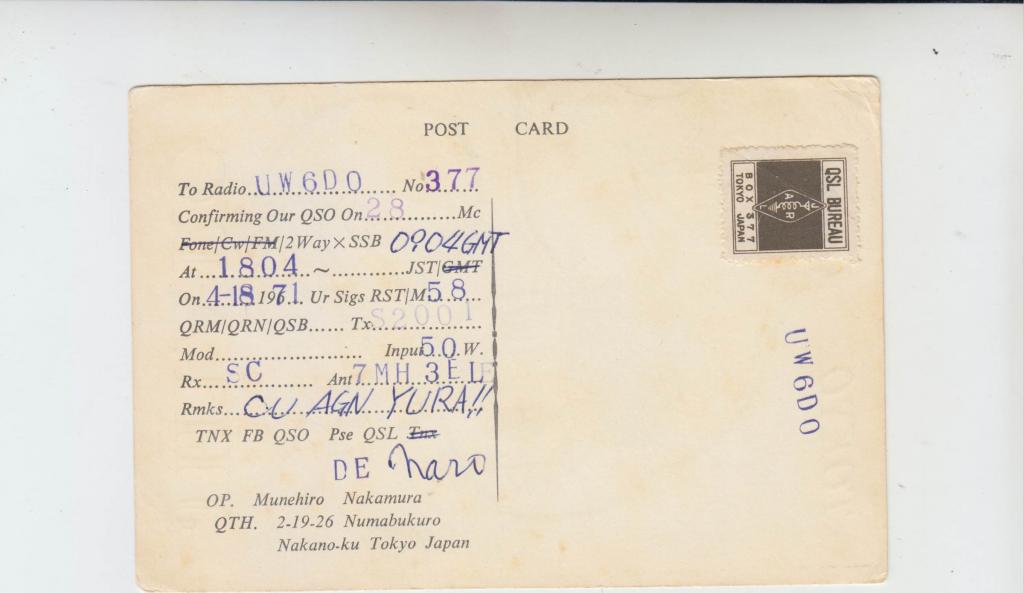 POST CARD
To Radio UW6DO No. 377
Confirming Our QSO On 28 Mc
Fone/Cw/FM/2Way×SSB 0904GMT
At 1804 ~ JST/GMT
On 4-18 196 71 Ur Sigs RST/M 58
QRM/QRN/QSB...... Tx S2001
Mod Input 50 W.
Rx SC Ant 7MH 3ELE
Rmks CU AGN YURA!!
TNX FB QSO Pse QSL Tnx
DE
OP. Munehiro Nakamura
QTH. 2-19-26 Numabukuro
Nakano-ku Tokyo Japan
QSL BUREAU
JARL
BOX 377
TOKYO JAPAN
UW6DO